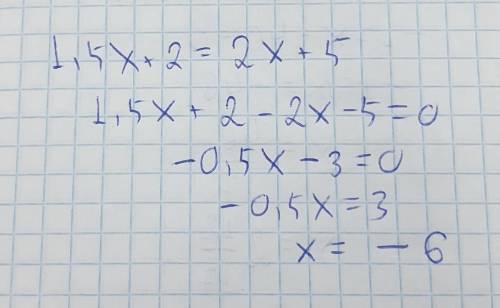 1,5x+2=2x+5
1,5x+2-2x-5=0
-0,5x-3=0
-0,5x=3
x=-6